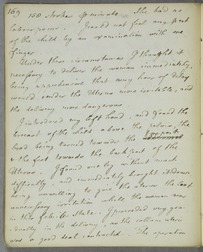 169 100 strokes pr minute. She had no
labor pains. I could not feel any part
of the child by an examination with one
finger.
Under these circumstances I thought it
necessary to deliver the woman immediately,
being apprehensive that any hour of delay
would render the Uterus more irritable, and
the delivery more dangerous
I introduced my left hand, and found the
breast of the child above the pubes, the
head being turned towards the
& the feet towards the back part of the
Uterus. I found one leg without much
difficulty, and immediately brought it down
being unwilling to give the uterus the least
unnecessary irritation while the woman was
in this feeble state. I proceeded very gra-
dually in the delivery, as the
was a good deal contracted. The operation